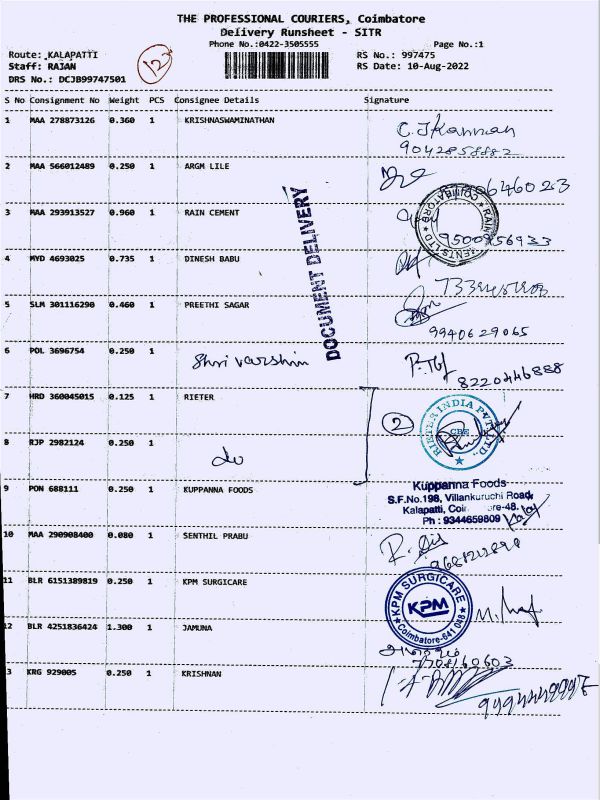 THE PROFESSIONAL COURIERS, Coimbatore
Delivery Runsheet - SITR
Phone No.:0422-3505555 Page No.:1
Route: KALAPATTI RS No.: 997475
Staff: RAJAN RS Date: 10-Aug-2022
DRS No.: DCJB99747501
S No Consignment No Weight PCS Consignee Details Signature
1 MAA 278873126 0.360 1 KRISHNASWAMINATHAN
C.J Kannan
9042858882
2 MAA 566012489 0.250 1 ARGM LILE
3 MAA 293913527 0.960 1 RAIN CEMENT
9500956933
4 MYD 4693025 0.735 1 DINESH BABU
5 SLM 301116290 0.460 1 PREETHI SAGAR
9940629065
DOCUMENT DELIVERY
6 POL 3696754 0.250 1 Shri varshini
8220446888
7 HRD 360045015 0.125 1 RIETER
2
RIETER INDIA PVT. LTD.,
CBE
8 RJP 2982124 0.250 1 do
9 PON 688111 0.250 1 KUPPANNA FOODS
Kuppanna Foods
S.F.No.198, Villankuruchi Road,
Kalapatti, -48.
Ph : 9344659809
10 MAA 290908400 0.080 1 SENTHIL PRABU
11 BLR 6151389819 0.250 1 KPM SURGICARE
KPM SURGICARE
KPM
Coimbatore-641 048
12 BLR 4251836424 1.300 1 JAMUNA
7708160603
3 KRG 929005 0.250 1 KRISHNAN